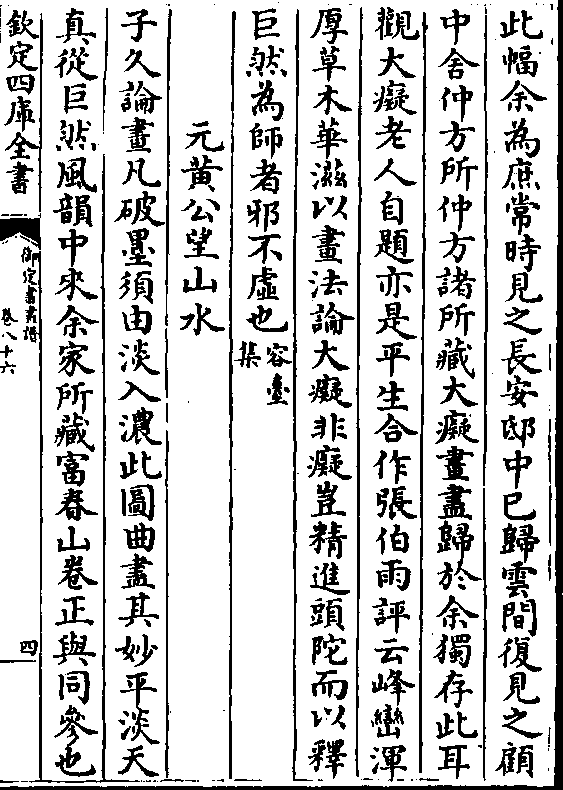 此幅余為庶常時見之長安邸中已歸雲間復見之顧
中舍仲方所仲方諸所藏大癡畫盡歸於余獨存此耳
觀大癡老人自題亦是平生合作張伯雨評云峰巒渾
厚草木華滋以畫法論大癡非癡豈精進頭陀而以釋
巨然為師者邪不虛也容臺集
元黃公望山水
子久論畫凡破墨須由淡入濃此圖曲盡其妙平淡天
真從巨然風韻中來余家所藏富春山卷正與同參也
欽定四庫全書
御定書畫譜
卷八十六
四